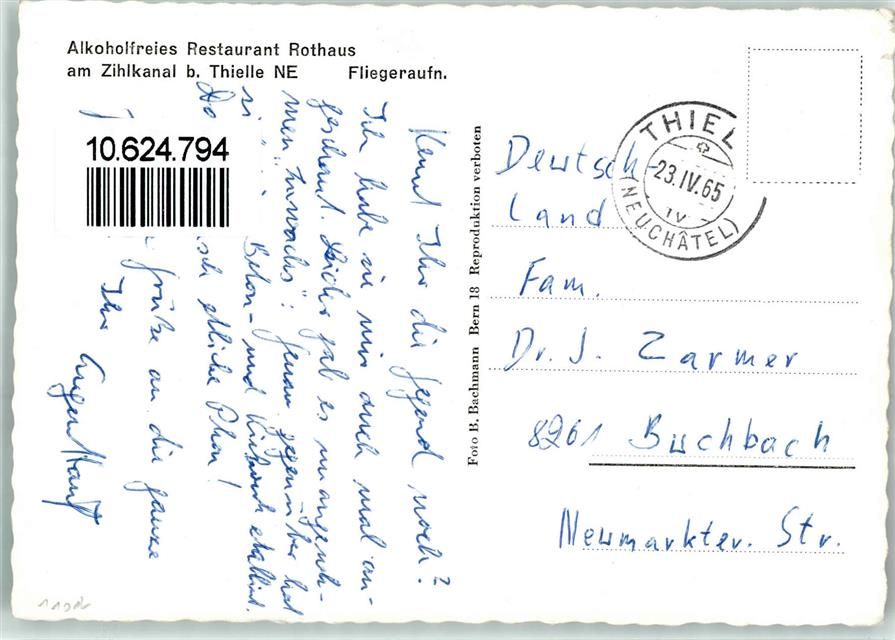 Alkoholfreies Restaurant Rothaus
am Zihlkanal b. Thielle NE Fliegeraufn.
10.624.794
Kennt Ihr die Gegend noch?
Ich habe sie mir auch mal an-
geschaut. Leider gab es unangeneh-
men "Zuwachs": Genau gegenüber hat
si Beton- und etabliert.
Do etliche Phon!
Grüße an die ganze
Ihr
Foto B. Bachmann Bern 18 Reproduktion verboten
THIEL
23.IV.65
IV
(NEUCHÂTEL)
Deutsch
land
Fam.
Dr. J. Zarmer
8261 Buchbach
Neumarkter. Str.